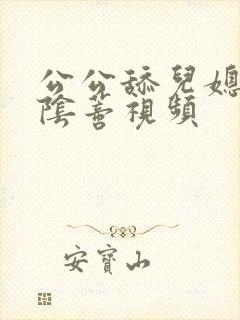 公公舔兒媳
陰蒂視頻
安寶山